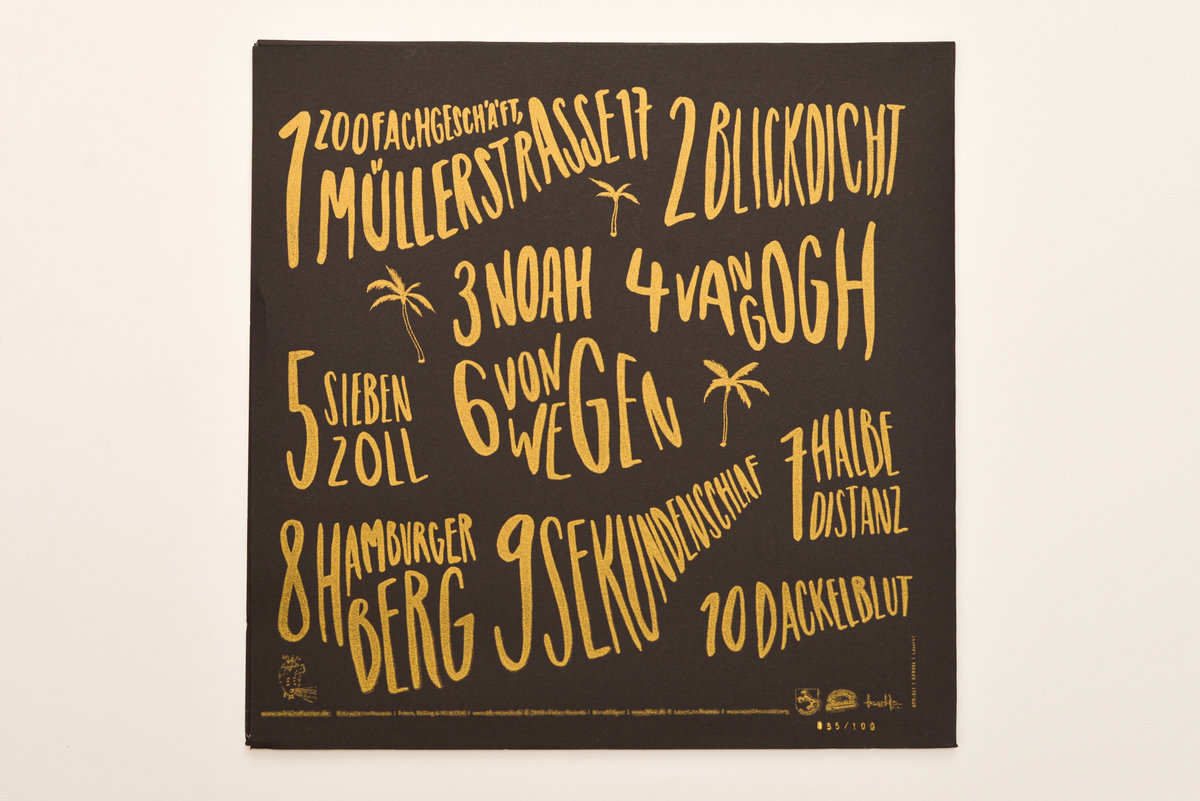 1 ZOOFACHGESCHÄFT,
MÜLLERSTRASSE 17
2 BLICKDICHT
3 NOAH
4 VAN GOGH
5 SIEBEN
ZOLL
6 VON
WEGEN
7 HALBE
DISTANZ
8 HAMBURGER
BERG
9 SEKUNDENSCHLAF
10 DACKELBLUT
35/100